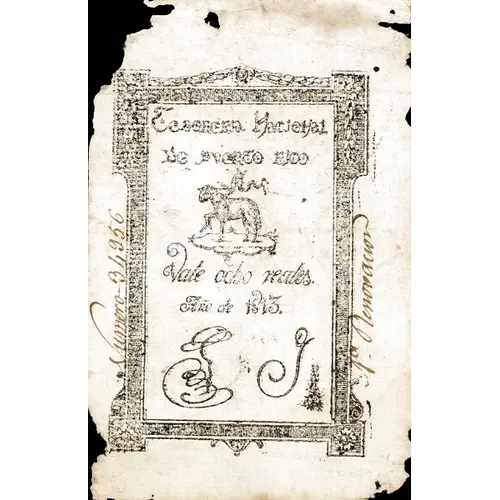 Tesoreria Nacional
de Puerto Rico
Vale ocho reales.
Año de 1813.
Numero 34956
1ª. Renovacion